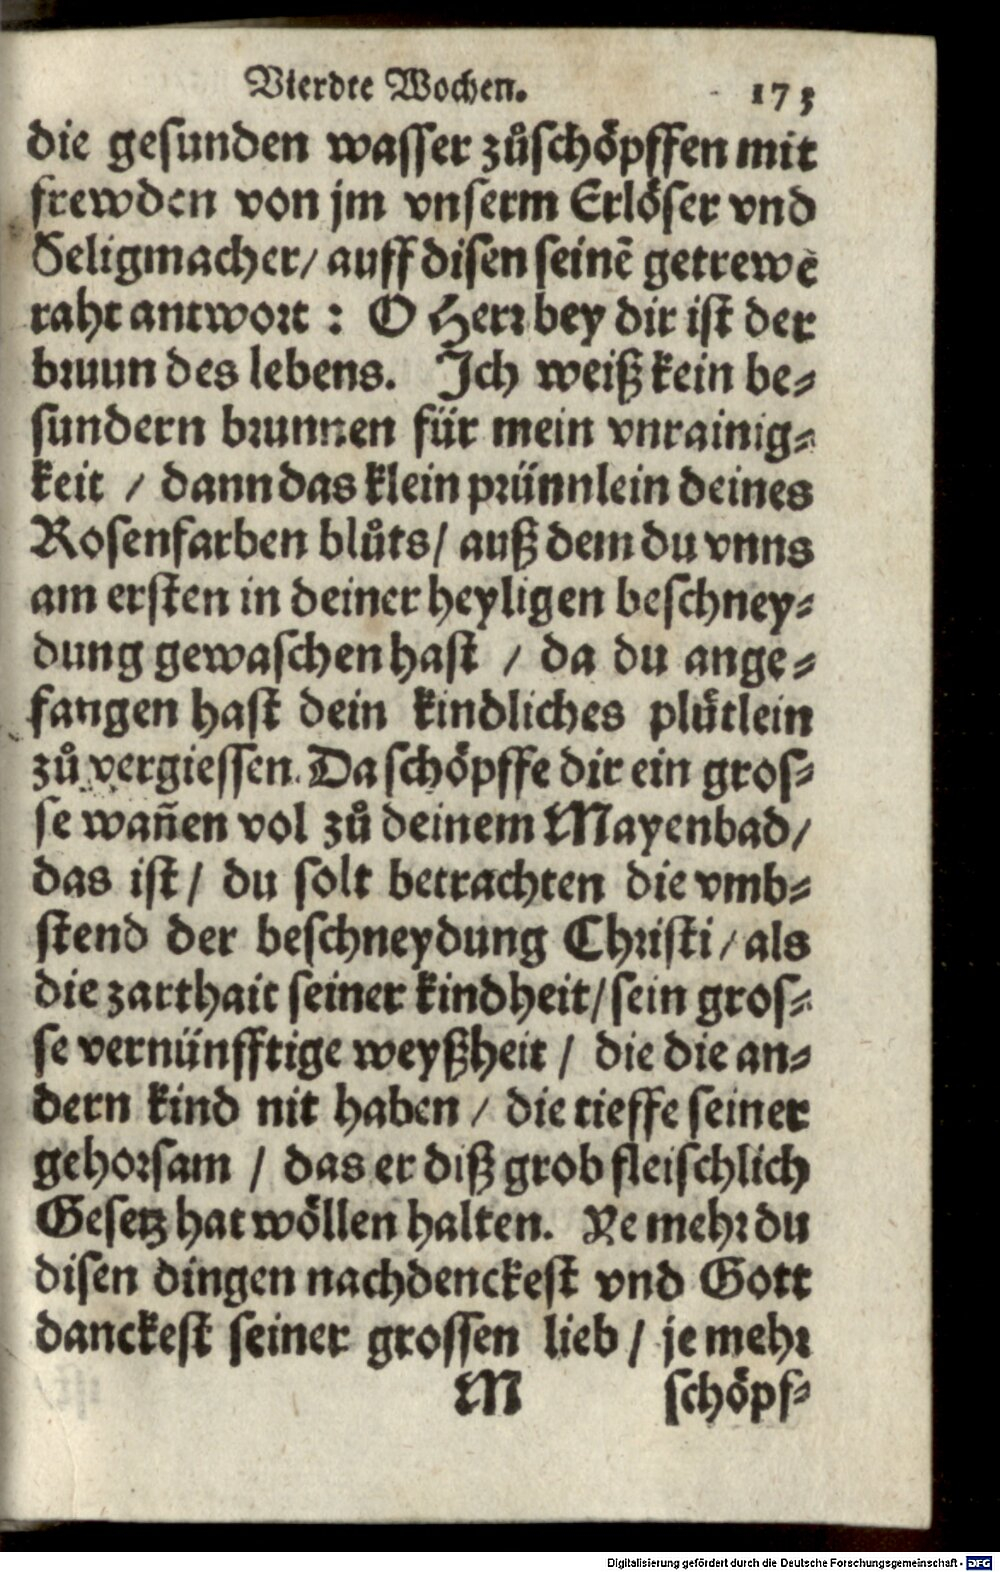 Vierdte Wochen. 173
die gesunden wasser zůschöpffen mit
frewden von jm vnserm Erlöser vnd
Seligmacher/ auff disen seinē getrewē
raht antwort : O Herr bey dir ist der
bruun des lebens. Ich weiß kein be⸗
sundern brunnen für mein vnrainig⸗
keit / dann das klein prünnlein deines
Rosenfarben blůts/ auß dem du vnns
am ersten in deiner heyligen beschney⸗
dung gewaschen hast / da du ange⸗
fangen hast dein kindliches plütlein
zů vergiessen. Da schöpffe dir ein gros⸗
se wañen vol zů deinem Mayenbad/
das ist/ du solt betrachten die vmb⸗
stend der beschneydung Christi/ als
die zarthait seiner kindheit/ sein gros⸗
se vernünfftige weyßheit / die die an⸗
dern kind nit haben / die tieffe seiner
gehorsam / das er diß grob fleischlich
Gesetz hat wöllen halten. Ye mehr du
disen dingen nachdenckest vnd Gott
danckest seiner grossen lieb / je mehr
M schöpf⸗
Digitalisierung gefördert durch die Deutsche Forschungsgemeinschaft - DFG